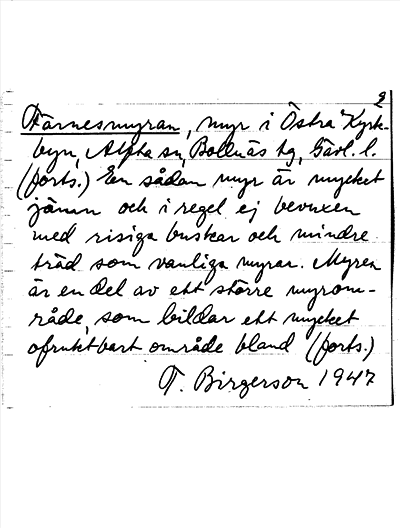 2
Färnesmyran, myr i Östra Kyrk-
byn, Alfta sn, Bollnäs tg, Gävl. l.
(forts.) En sådan myr är mycket
jämn och i regel ej bevuxen
med risiga buskar och mindre
träd som vanliga myrar. Myren
är en del av ett större myrom-
råde, som bildar ett mycket
ofruktbart område bland (forts.)
T. Birgerson 1947